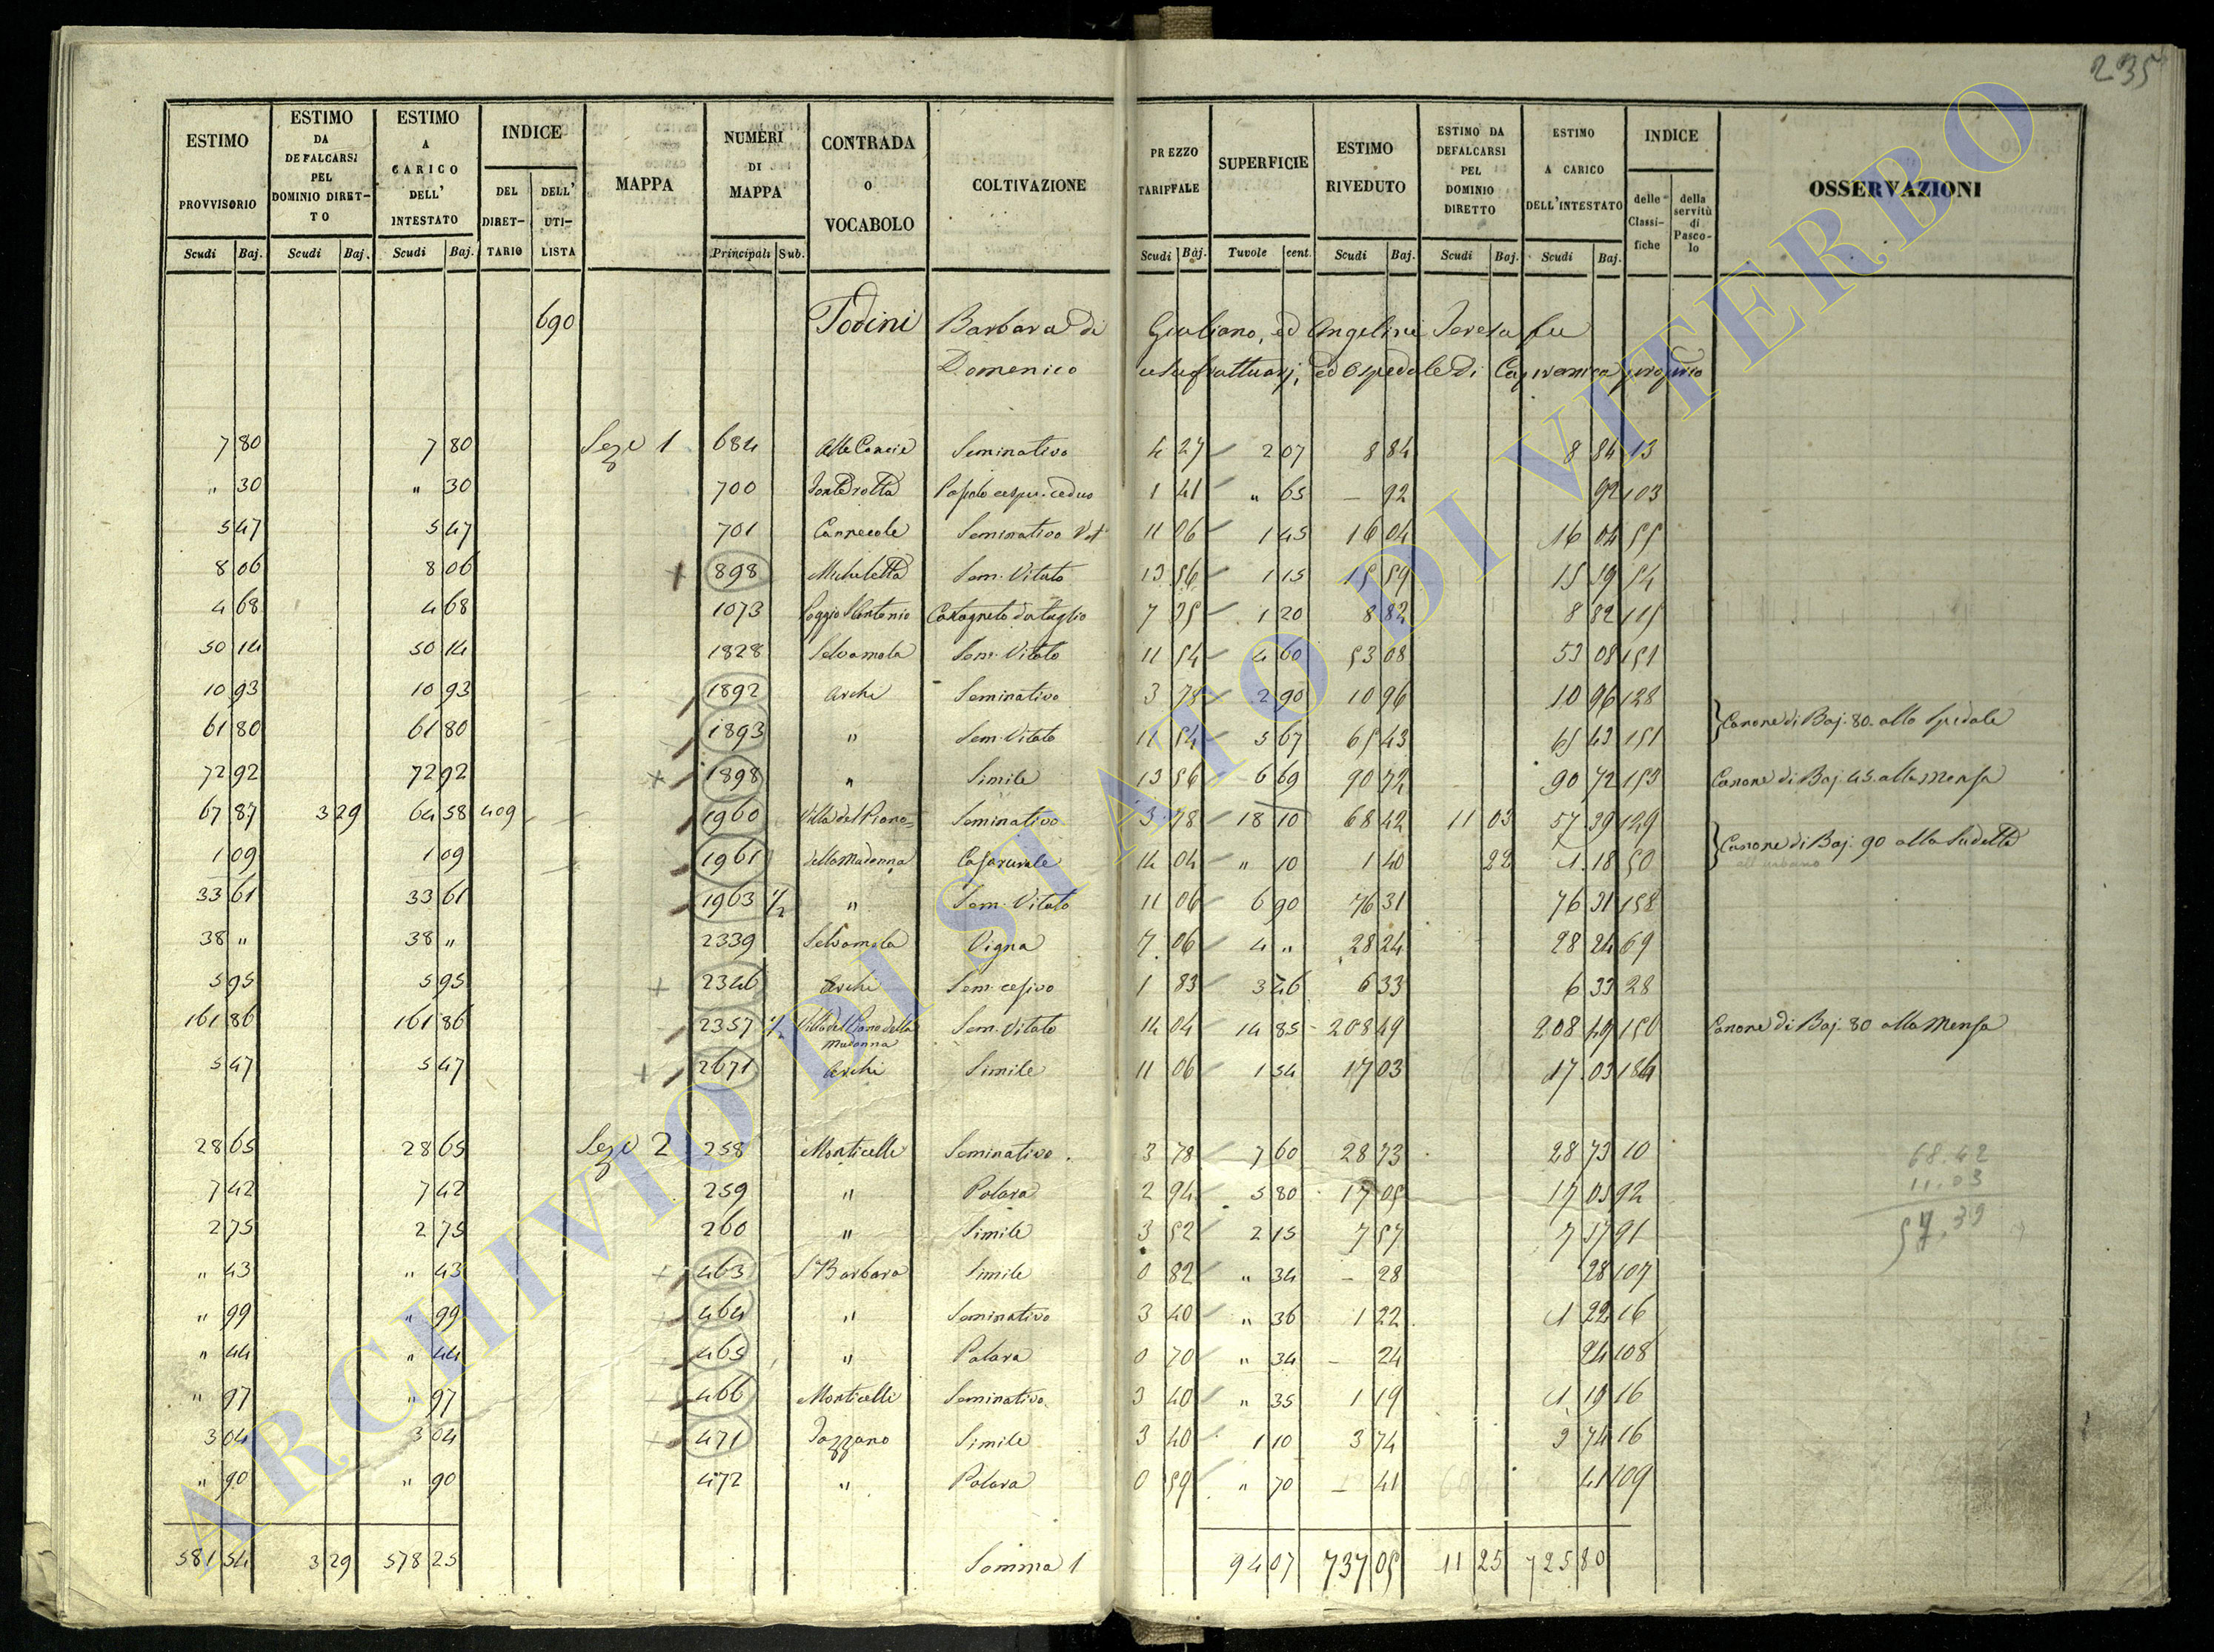 235
ESTIMO PROVVISORIO
ESTIMO DA DEFALCARSI PEL DOMINIO DIRETTO
ESTIMO A CARICO DELL' INTESTATO
INDICE
DEL DIRETTARIO
DELL' UTILISTA
MAPPA
NUMERI DI MAPPA
CONTRADA O VOCABOLO
COLTIVAZIONE
PREZZO TARIFFALE
SUPERFICIE
ESTIMO RIVEDUTO
ESTIMO DA DEFALCARSI PEL DOMINIO DIRETTO
ESTIMO A CARICO DELL'INTESTATO
INDICE
delle Classifiche
della servitù di Pascolo
OSSERVAZIONI
Scudi Baj. Scudi Baj. Scudi Baj. Principali Sub. Scudi Baj. Tavole cent. Scudi Baj. Scudi Baj. Scudi Baj.
690 Todini Barbara di Giuliano, ed Angelini Teresa fu
Domenico usufruttuarj, ed Ospedale di Capranica proprio
7 80 7 80 Sez 1 684 Seminativo 4 27 2 07 8 84 8 84 13
" 30 " 30 700 1 41 " 65 – 92 92 103
5 47 5 47 701 Cannecole Seminativo Vit 11 06 1 45 16 04 16 04 55
8 06 8 06 898 Micheletta Sem. Vitato 13 56 1 15 15 59 15 59 54
4 68 4 68 1073 Poggio S Antonio Castagneto da taglio 7 35 1 20 8 82 8 82 115
50 14 50 14 1828 Selvamola Sem. Vitato 11 54 4 60 53 08 53 08 151
10 93 10 93 1892 Archi Seminativo 3 78 2 90 10 96 10 96 128
61 80 61 80 1893 " Sem. Vitato 11 54 5 67 65 43 65 43 151 Canone di Baj. 80. allo Spedale
72 92 72 92 1898 " Simile 13 56 6 69 90 72 90 72 153 Canone di Baj. 45. alla Mensa
67 87 3 29 64 58 409 1960 Villa del Piano Seminativo 3 78 18 10 68 42 11 03 57 39 129
1 09 1 09 1961 della Madonna Casa rurale 14 04 " 10 1 40 22 1 18 50 Canone di Baj. 90 alla Sudetta
33 61 33 61 1963 1/2 " Sem. Vitato 11 06 6 90 76 31 76 31 158
38 " 38 " 2339 Selvamola Vigna 7 06 4 " 28 24 28 24 69
5 95 5 95 2346 Archi Sem. cesivo 1 83 3 46 6 33 6 33 28
161 86 161 86 2357 1/2 Villa del Piano della Madonna Sem. Vitato 14 04 14 85 208 49 208 49 150 Canone di Baj. 80 alla Mensa
5 47 5 47 2671 Archi Simile 11 06 1 54 17 03 17 03 184
28 65 28 65 Sez 2 258 Monticelli Seminativo 3 78 7 60 28 73 28 73 10
7 42 7 42 259 " Polara 2 94 5 80 17 05 17 05 92
2 75 2 75 260 " Simile 3 52 2 15 7 57 7 57 91
" 43 " 43 463 S Barbara Simile 0 82 " 34 – 28 28 107
" 99 " 99 464 " Seminativo 3 40 " 36 1 22 1 22 16
" 44 " 44 465 " Polara 0 70 " 34 – 24 24 108
" 97 " 97 466 Monticelli Seminativo 3 40 " 35 1 19 1 19 16
3 04 3 04 471 Simile 3 40 1 10 3 74 3 74 16
" 90 " 90 472 " Polara 0 59 " 70 – 41 41 109
68.42
11.03
57.39
581 54 3 29 578 25 Somma 1 94 07 737 05 11 25 725 80
ARCHIVIO DI STATO DI VITERBO